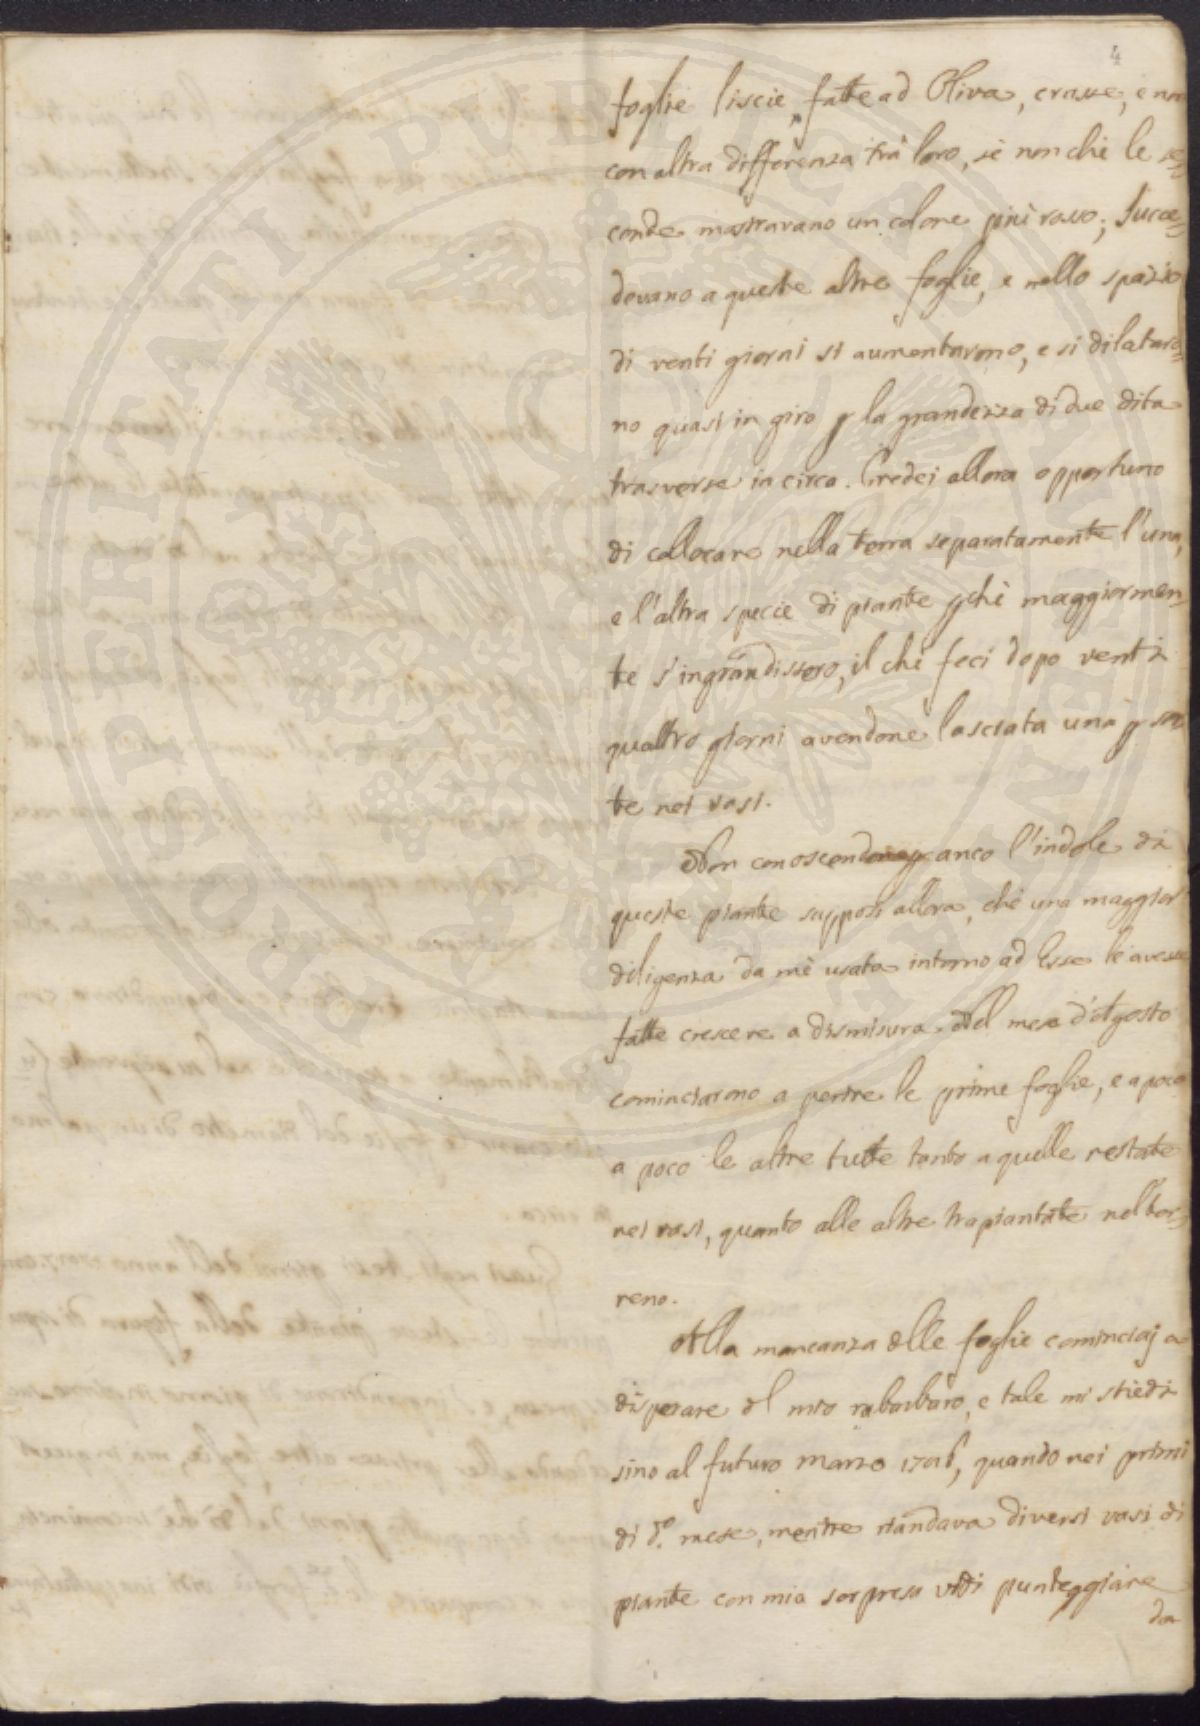 4
foglie liscie, fatte ad Oliva, crasse, e non
con altra differenza trà loro, sè non chè le se=
conde mostravano un colore più rosso; Succe=
devano a queste altre foglie, e nello spazio
di venti giorni si aumentarono, e si dilataro=
no quasi in giro p la grandezza di due dita
trasverse in circa. Credei allora opportuno
di collocare nella terra separatamente l'una,
e l'altra specie di piante pchè maggiormen=
te s'ingrandissero, il chè feci dopo venti
quattro giorni avendone lasciata una p sor
te nei vasi.
Non conoscendo anco l'indole di
queste piante supposi allora, chè una maggior
diligenza da mè usata intorno ad Esse le avesse
fatte crescere a dismisura. Nel mese d'Agosto
cominciarono a perire le prime foglie, e a poco
a poco le altre tutte tanto a quelle restate
nei vasi, quanto alle altre trapiantate nel ter=
reno.
Alla mancanza delle foglie cominciaj a
disperare del mio rabarbaro, e tale mi stiedi
sino al futuro marzo quando nei primi
di do. mese, mentre riandava diversi vasi di
piante con mia sorpresa vidi punteggiare
da
PROSPERITATI PUBLICAE AUGENDAE